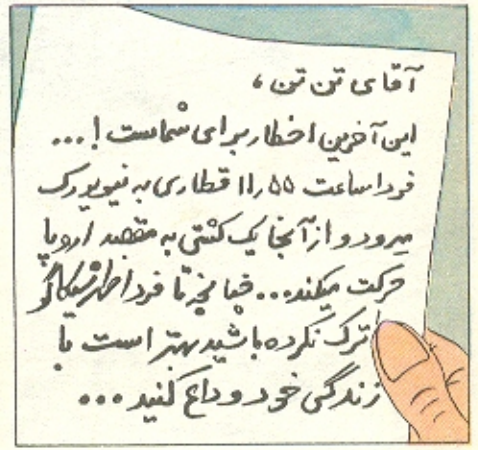 آقای تن تن ،
این آخرین اخطار برای شماست !...
فردا ساعت ۱۱٫۵۵ قطاری به نیویورک
میرود و از آنجا یک کشتی به مقصد اروپا
حرکت میکند... چنانچه تا فردا ظهر شیکاگو
ترک نکرده باشید بهتر است با
زندگی خود وداع کنید ...